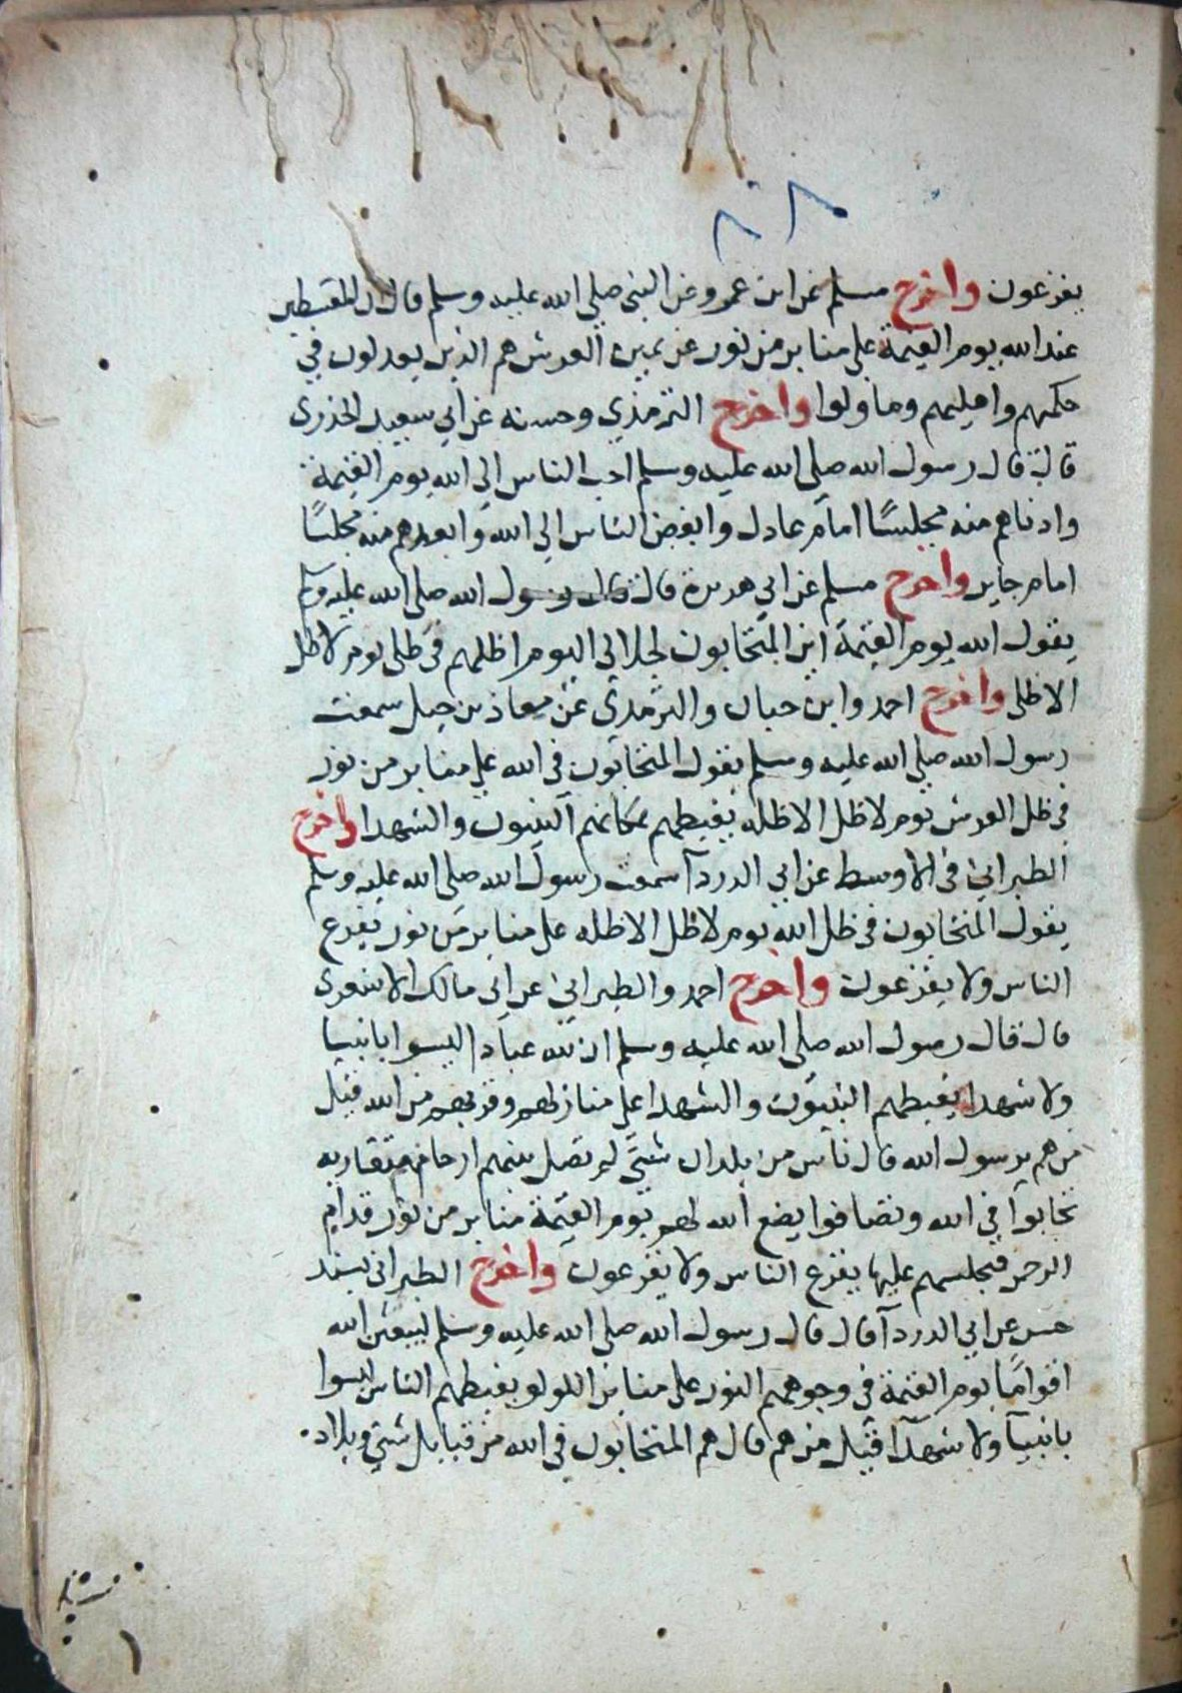 ٨٨
يفزعون واخرج مسلم عن ابن عمرو عن النبي صلي الله عليه وسلم قال ان المقسطين
عند الله يوم القيمة علي منابر من نور عن يمين العرش هم الذين يعدلون في
حكمهم واهليهم وما ولوا واخرج الترمذي وحسنه عن ابي سعيد الخدري
قال قال رسول الله صلي الله عليه وسلم احب الناس الي الله يوم القيمة
وادناهم منه مجلسًا امام عادل وابغض الناس الي الله وابعدهم منه مجلسًا
امام جاير واخرج مسلم عن ابي هريرة قال قال رسول الله صلي الله عليه وسلم
يقول الله يوم القيمة اين المتحابون لجلالي اليوم اظلهم في ظلي يوم لا ظل
الا ظلي واخرج احمد وابن حبان والترمذي عن معاذ بن جبل سمعت
رسول الله صلي الله عليه وسلم يقول المتحابون في الله علي منابر من نور
في ظل العرش يوم لا ظل الا ظله يغبطهم بمكانهم النبيون والشهدا واخرج
الطبراني في الاوسط عن ابي الدردآ سمعت رسول الله صلي الله عليه وسلم
يقول المتحابون في ظل الله يوم لا ظل الا ظله علي منابر من نور يفزع
الناس ولا يفزعون واخرج احمد والطبراني عن ابي مالك الاشعري
قال قال رسول الله صلي الله عليه وسلم ان لله عبادا ليسوا بانبيا
ولا شهدا يغبطهم النبيون والشهدا علي منازلهم وقربهم من الله قيل
من هم يرسول الله قال ناس من بلدان شتي لم تصل بينهم ارحام متقاربه
تحابوا في الله وتصافوا يضع الله لهم يوم القيمة منابر من نور قدام
الرحمن فيجلسهم عليها يفزع الناس ولا يفزعون واخرج الطبراني بسند
حسن عن ابي الدردآ قال قال رسول الله صلي الله عليه وسلم ليبعثن الله
اقوامًا يوم القيمة في وجوههم النور علي منابر اللولو يغبطهم الناس ليسوا
بانبيآ ولا شهدآ قيل من هم قال هم المتحابون في الله من قبايل شتي وبلاد